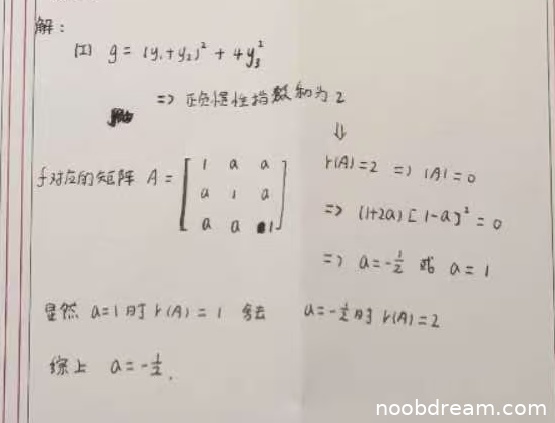 解:
(I) g = (y₁+y₂)² + 4y₃²
=> 正负惯性指数和为2
⇓
f对应的矩阵 A = [1 a a; a 1 a; a a 1]
r(A)=2 => |A|=0
=> (1+2a)[1-a]²=0
=> a=-1/2 或 a=1
显然 a=1时 r(A)=1 舍去 a=-1/2时 r(A)=2
综上 a=-1/2.
noobdream.com